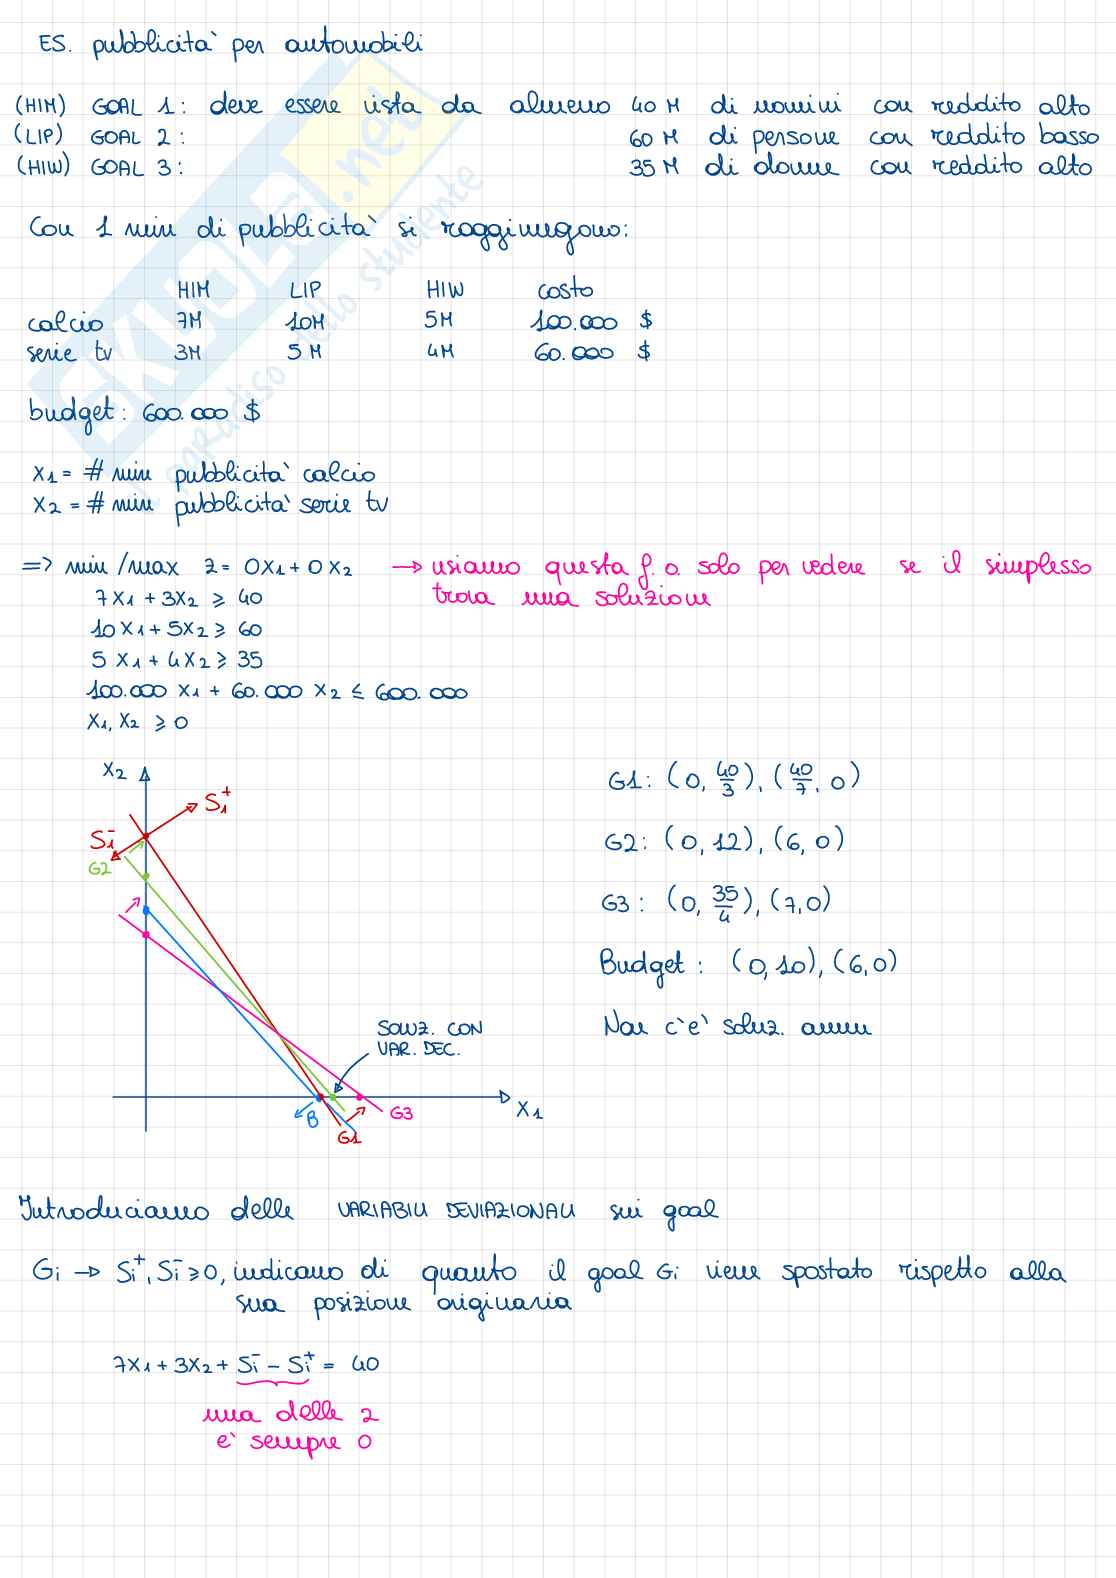 ES. pubblicità per automobili
(HIM) GOAL 1: deve essere vista da almeno 40 M di uomini con reddito alto
(LIP) GOAL 2: 60 M di persone con reddito basso
(HIW) GOAL 3: 35 M di donne con reddito alto
Con 1 min di pubblicità si raggiungono:
HIM LIP HIW costo
calcio 7M 10M 5M 100.000 $
serie tv 3M 5M 4M 60.000 $
budget: 600.000 $
x1 = # min pubblicità calcio
x2 = # min pubblicità serie tv
=> min/max z = 0x1 + 0x2 → usiamo questa f.o. solo per vedere se il simplesso
trova una soluzione
7x1 + 3x2 ≥ 40
10x1 + 5x2 ≥ 60
5x1 + 4x2 ≥ 35
100.000 x1 + 60.000 x2 ≤ 600.000
x1, x2 ≥ 0
x2
S1+
Si-
G2
SOLUZ. CON
VAR. DEC.
B
G1
G3
x1
G1: (0, 40/3), (40/7, 0)
G2: (0, 12), (6, 0)
G3: (0, 35/4), (7, 0)
Budget: (0, 10), (6, 0)
Non c'è soluz. amm
Introduciamo delle VARIABILI DEVIAZIONALI sui goal
Gi → Si+, Si- ≥ 0, indicano di quanto il goal Gi viene spostato rispetto alla
sua posizione originaria
7x1 + 3x2 + Si- - Si+ = 40
una delle 2
è sempre 0
SKUOLA.net
il paradiso dello studente